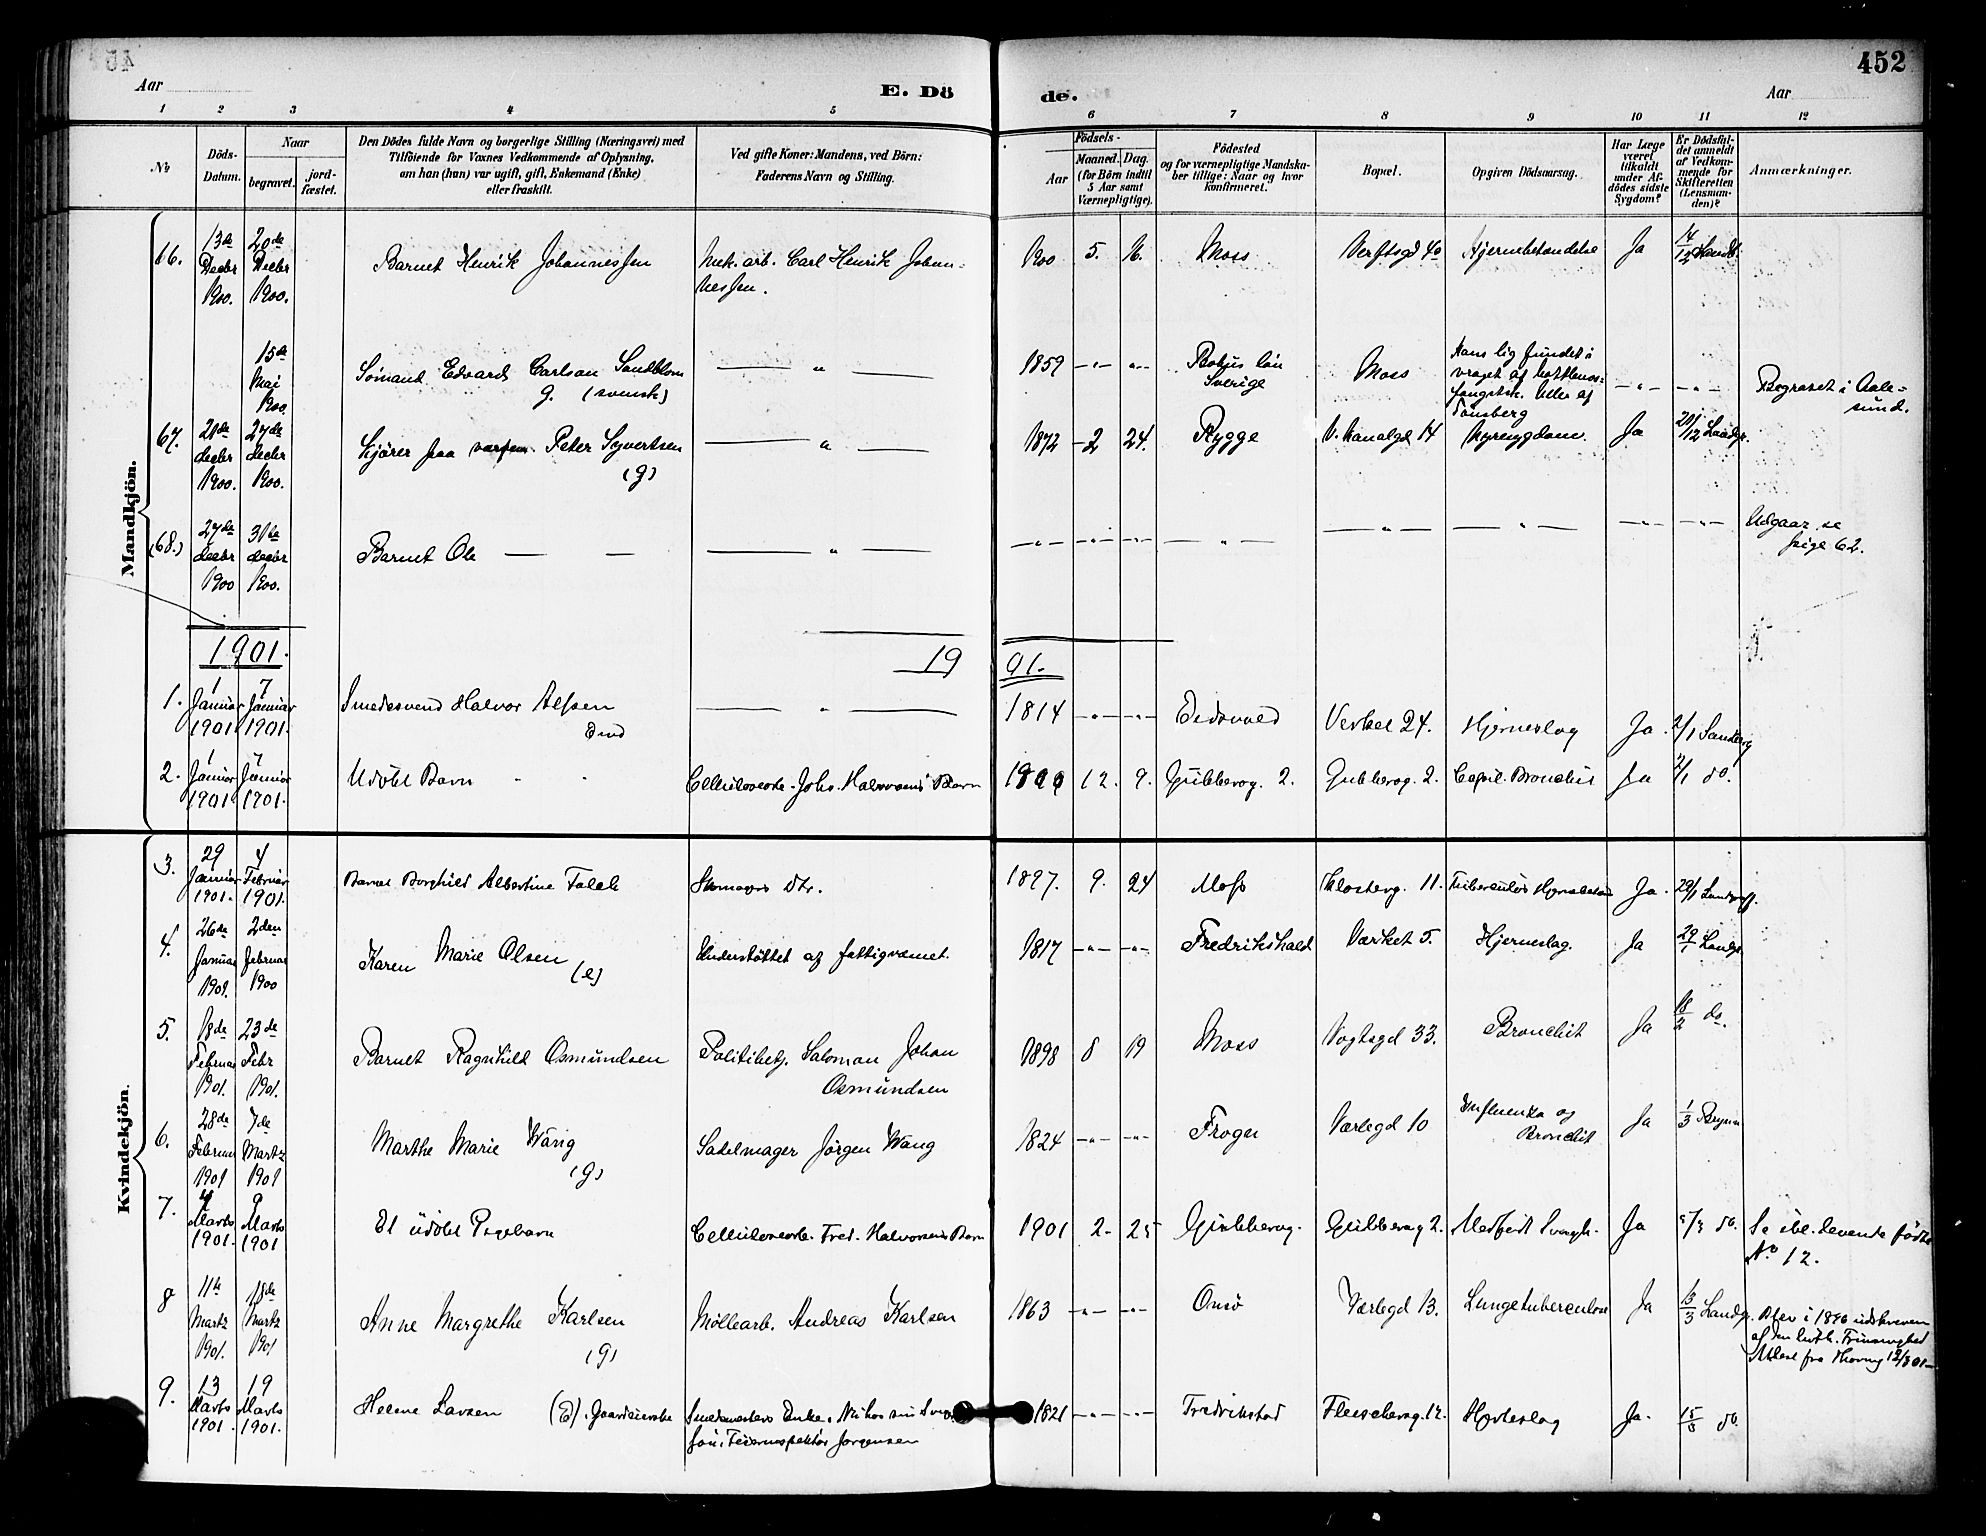 452
Aar
E. Dö
de.
Aar
1 2 3 4 5 6 7 8 9 10 11 12
No
Döds-
Datum.
Naar
begravet.
jord-
fæstet.
Den Dödes fulde Navn og borgerlige Stilling (Næringsvei) med
Tilföiende for Voxnes Vedkommende af Oplysning,
om han (hun) var ugift, gift, Enkemand (Enke)
eller fraskilt.
Ved gifte Koner: Mandens, ved Börn:
Faderens Navn og Stilling.
Födsels-
Aar
Maaned. Dag.
(for Börn indtil
5 Aar samt
Værnepligtige).
Födested
og for værnepligtige Mandska-
ber tillige: Naar og hvor
konfirmeret.
Bopæl.
Opgiven Dödsaarsag.
Har Læge
været
tilkaldt
under Af-
dödes sidste
Sygdom?
Er Dödsfal-
det anmeldt
af Vedkom-
mende for
Skifteretten
(Lensman-
den)?
Anmærkninger.
Mandkjön.
16. 13de Decbr 1900. 20de Decbr 1900. Barnet Henrik Johannessen Mek. arb. Carl Henrik Johan-
nessen. 1900 5. 16. Moss Verftsgd 40 Hjernebetændelse Ja 14/12
15de Mai 1900. Sömand Edvard Carlson Sandblom
g. (svensk) — " — 1859 — " — Bohus län
Sverige Moss Hans lig fundet i
vraget af
fangstsk. af
Tönsberg — " — Begravet i Aale-
sund.
67. 21de decbr 1900. 27de decbr 1900. Kjörer paa Peter Syvertsen
(g) — " — 1872 - 2 24. Rygge V. Kanalgd 14 Nyresygdom. Ja 21/12
(68.) 27de decbr 1900 31te decbr 1900. Barnet Ole — — — " — Udgaar se
pige 62.
1901. 19 01.
1. 1 Januar 1901 7 Januar 1901. Smedesvend Halvor Alfsen
Emd — " — 1814 — " — Eidsvold Verket 24. Hjerneslag Ja. 2/1 Sandberg
2. 1 Januar 1901 7 Januar 1901. Udöbt Barn " " Cellulosearb. Johs. Halvorsens Barn 1900 12. 9. Gubberog. 2. Gubberog. 2. Capil. Bronchit Ja 2/1 do.
Kvindekjön.
3. 29 Januar 1901. 4 Februar 1901. Barnet Borghild Albertine Falck Skomagers Dtr. 1897. 9. 24 Moss Klosterg. 11. Tuberculös Ja. 29/1
4. 26de Januar 1901. 2den Februar 1900 Karen Marie Olsen
(e) Understöttet af fattigvæsnet. 1817 — " — Fredrikshald Værket 5. Hjerneslag. Ja 29/1
5. 18de Februar 1901. 23de Febr 1901. Barnet Ragnhild Osmundsen Politibetj. Salomon Johan
Osmundsen 1898 8 19 Moss Vogtsgd 33. Bronchit Ja 18/2 do.
6. 28de Februar 1901 7de Marts 1901 Marthe Marie Wang
(g) Sadelmager Jörgen Wang 1824 — " — Frogn Værlegd 10 Influenza og
Bronchit Ja 1/3
7. 4 Marts 1901. 9 Marts 1901 Et udöbt Pigebarn Cellulosearb. Fred. Halvorsens Barn 1901 2. 25 Gubberog. Gubberog 2. Medfödt Svagh. Ja 5/3 do. Se ibl. levende födte
No 12.
8 11te Martz 1901. 18de Martz 1901 Anne Margrethe Karlsen
(g) Möllearb. Andreas Karlsen 1863 — " — Onsö Værlegd 13. Lungetuberculose Ja 13/3 Blev i 1896 udskreven
af den luth. Frimenighed
Attest fra Horney 12/3 01 —
9. 13 Marts 1901. 19 Marts 1901. Helene Larsen (E). Gaardeierske Smedmesters Enke. Nu hos sin
Feierinspektör Jorgensen 1821 — " — Fredrikstad Fleischerog. 12. Hjerteslag Ja. 15/3 do.